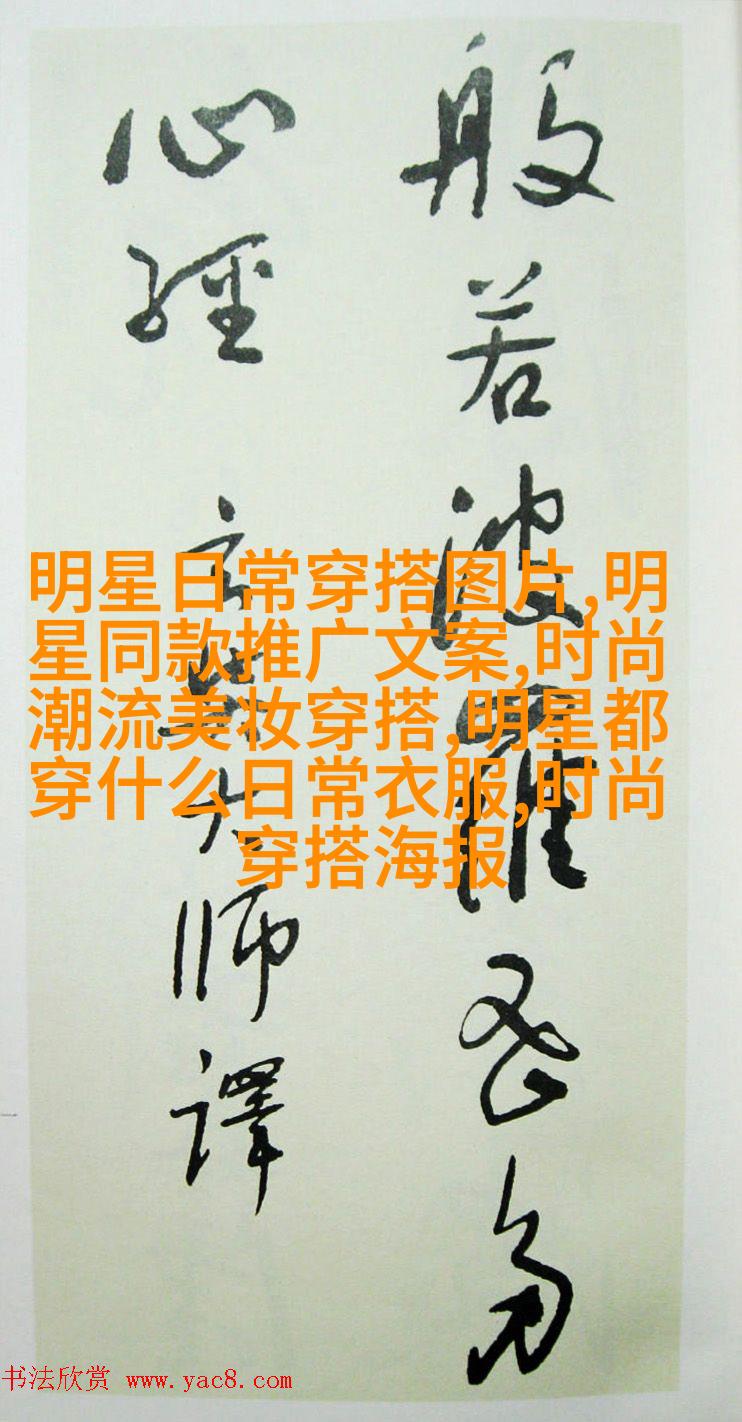 般若波羅密多
心經 玄奘大師譯
明星日常穿搭图片,明
星同款推广文案,时尚
潮流美妆穿搭,明星都
穿什么日常衣服,时尚
穿搭海报
书法欣赏 www.yac8.com